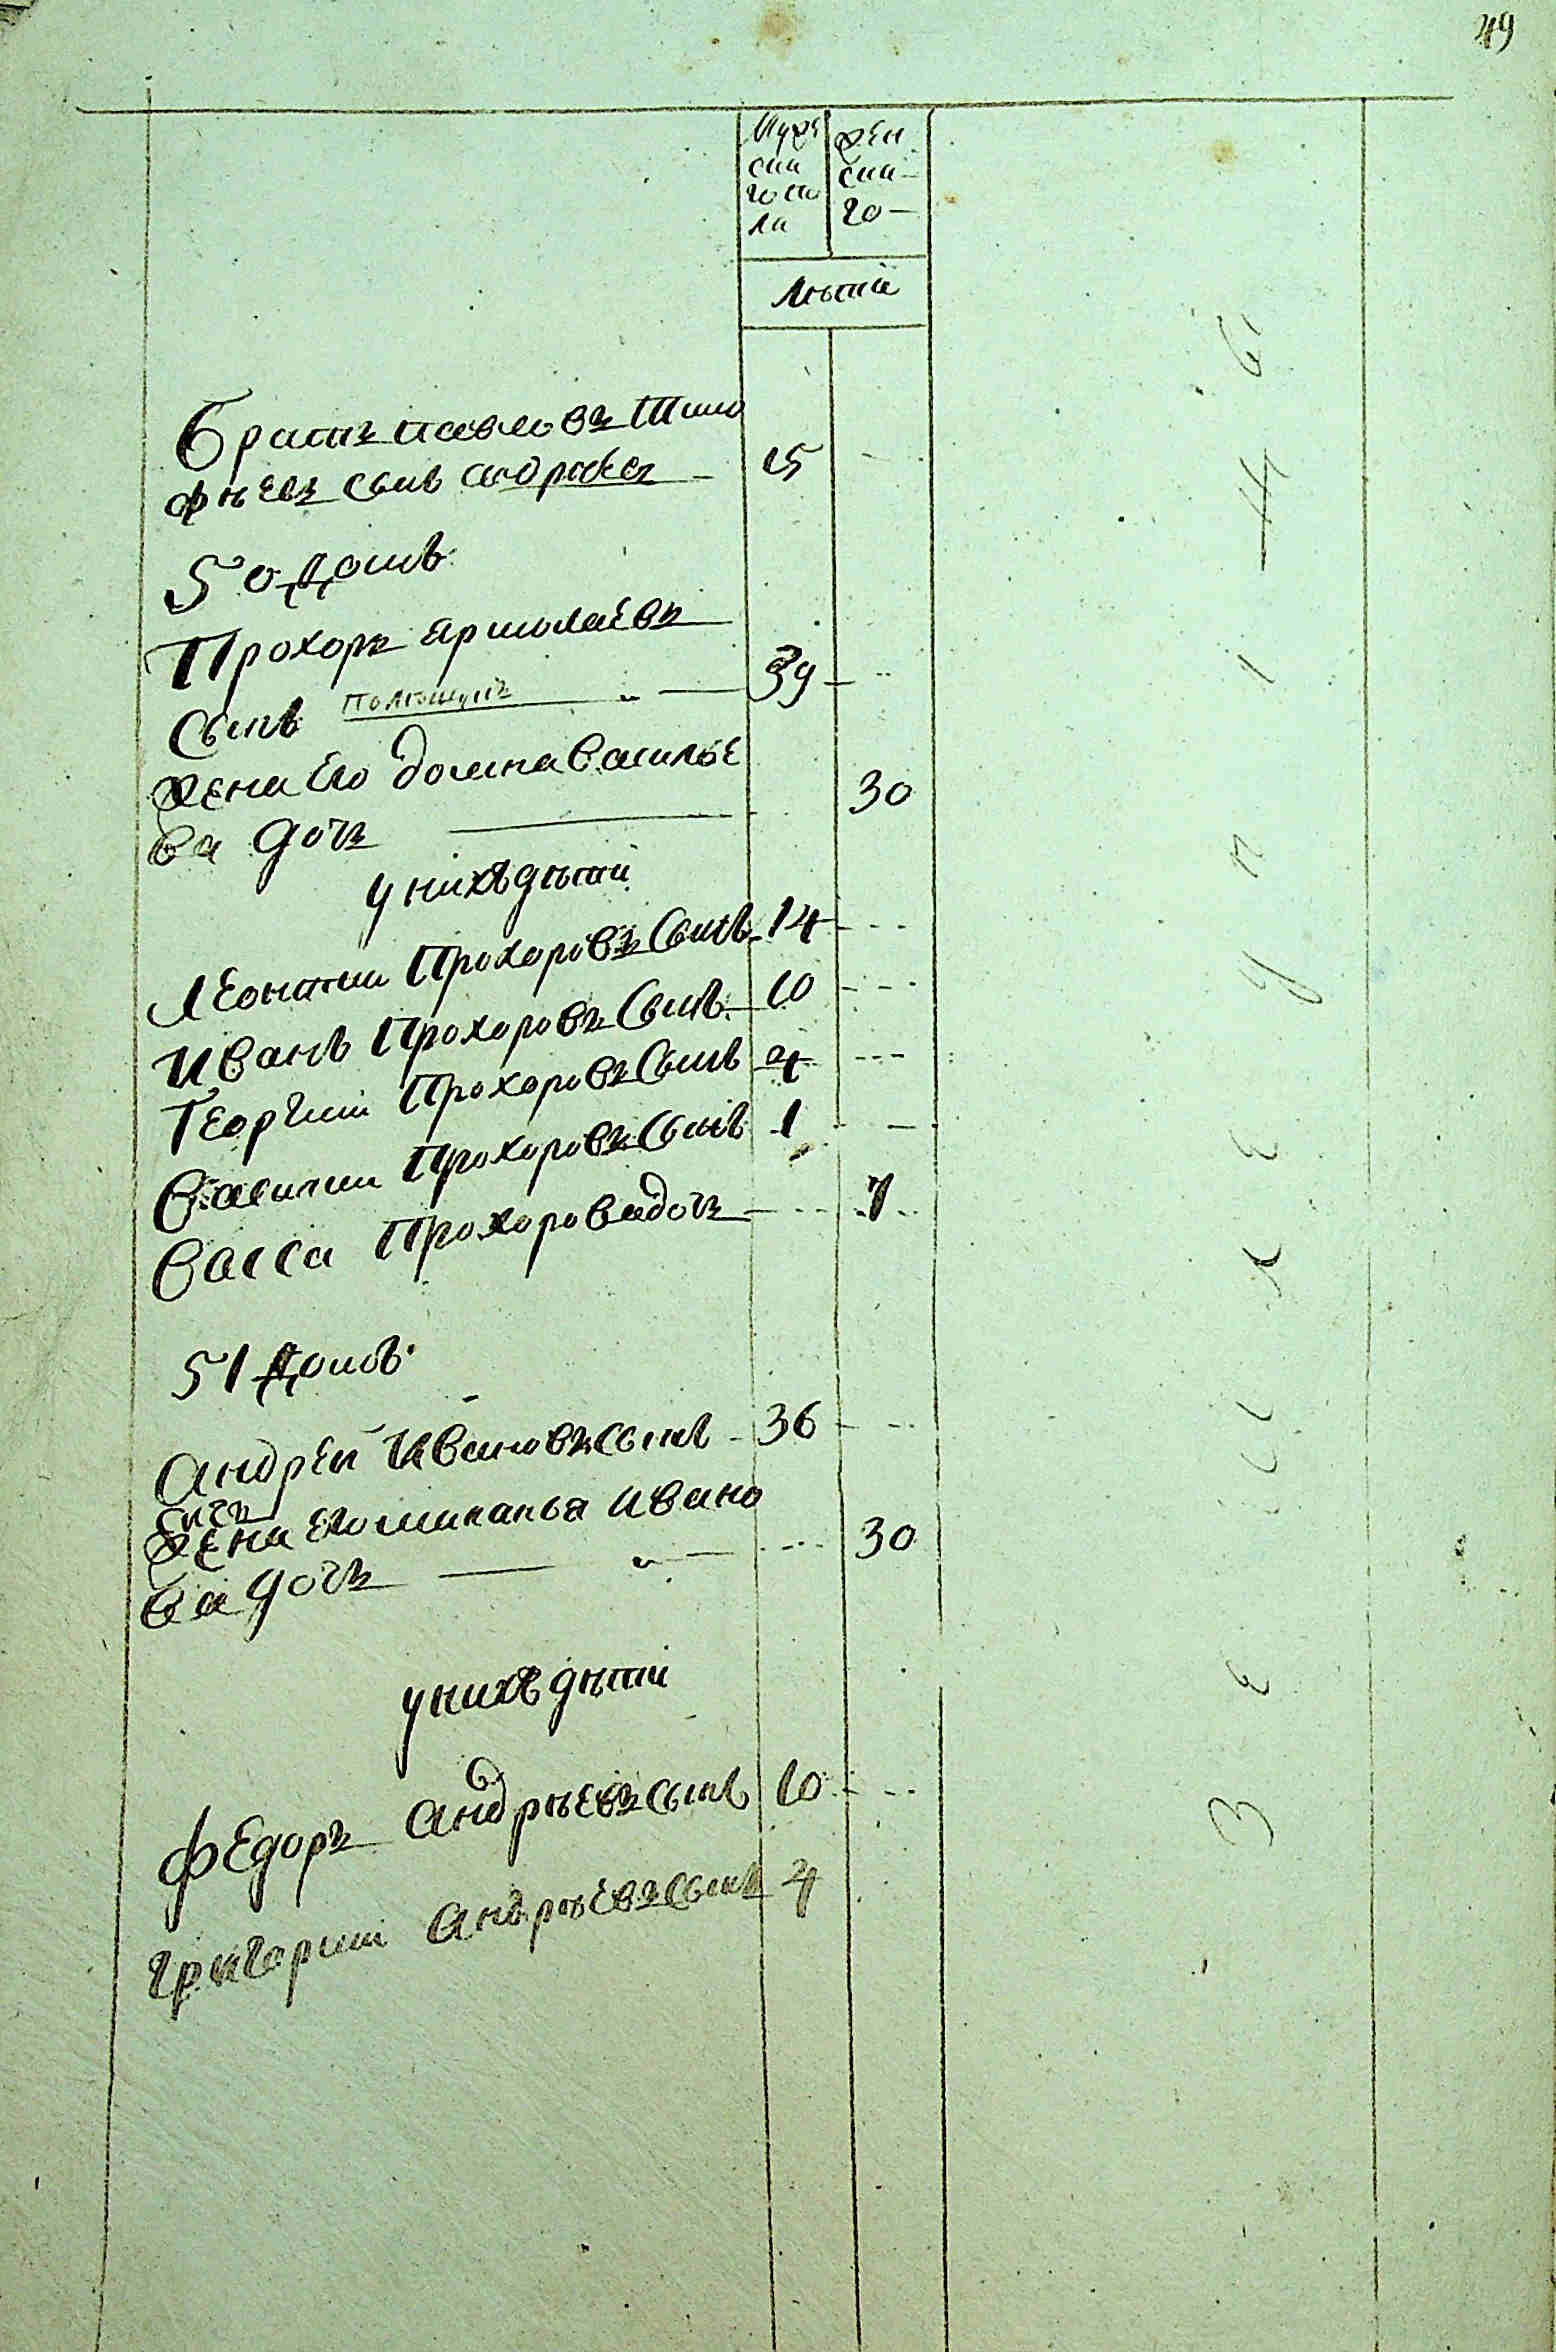 49
Муже
ска
го по
ла
жен
ска
го —
Лѣтіа
Братъ павловъ Тимо
фѣевъ сынъ
15
50 домъ
Прохоръ ярмолаевъ
сынъ
39
жена его домна василье
ва дочъ
30
у нихъ дѣти
Леонтии Прохоровъ сынъ 14
Иванъ Прохоровъ сынъ 10
Георгии Прохоровъ сынъ 4
Василии Прохоровъ сынъ 1
Васса Прохорова дочъ 7
51 домъ
Андрей Ивановъ сынъ 36
жена его маланья ивано
ва дочъ
30
у нихъ дѣти
Федоръ Андрѣевъ сынъ 10
григории Андрѣевъ сынъ 4